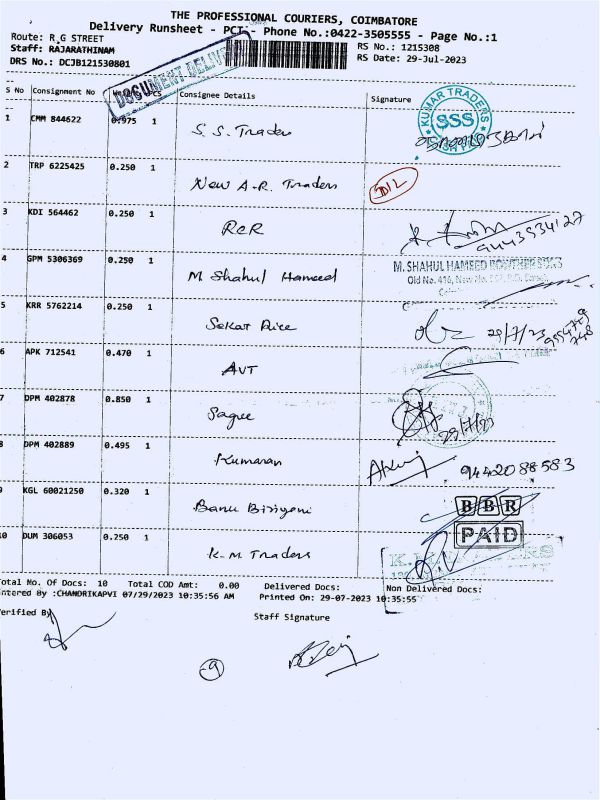 THE PROFESSIONAL COURIERS, COIMBATORE
Delivery Runsheet - PCT - Phone No.:0422-3505555 - Page No.:1
Route: R.G STREET
RS No.: 1215308
Staff: RAJARATHINAM
RS Date: 29-Jul-2023
DRS No.: DCJB121530801
DOCUMENT DELIVE
S No Consignment No Pcs Consignee Details Signature
1 CMM 844622 0.975 1 S.S. Traders
KUMAR TRADERS
SSS
2 TRP 6225425 0.250 1 New A.R. Traders
3 KDI 564462 0.250 1 RCR
9443934127
4 GPM 5306369 0.250 1 M Shahul Hameed
M. SHAHUL HAMEED ROWTHER SONS
Old No. 416, New No.
5 KRR 5762214 0.250 1 Sekar Rice 29/7/23
6 APK 712541 0.470 1 AVT
7 DPM 402878 0.850 1 29/7/23
8 DPM 402889 0.495 1 Kumaran 9442088583
9 KGL 60021250 0.320 1 Banu Biriyani
BBR
PAID
10 DUM 306053 0.250 1 K.M Traders
Total No. Of Docs: 10 Total COD Amt: 0.00 Delivered Docs: Non Delivered Docs:
Entered By :CHANDRIKAPVI 07/29/2023 10:35:56 AM Printed On: 29-07-2023 10:35:55
Verified By
Staff Signature
-9